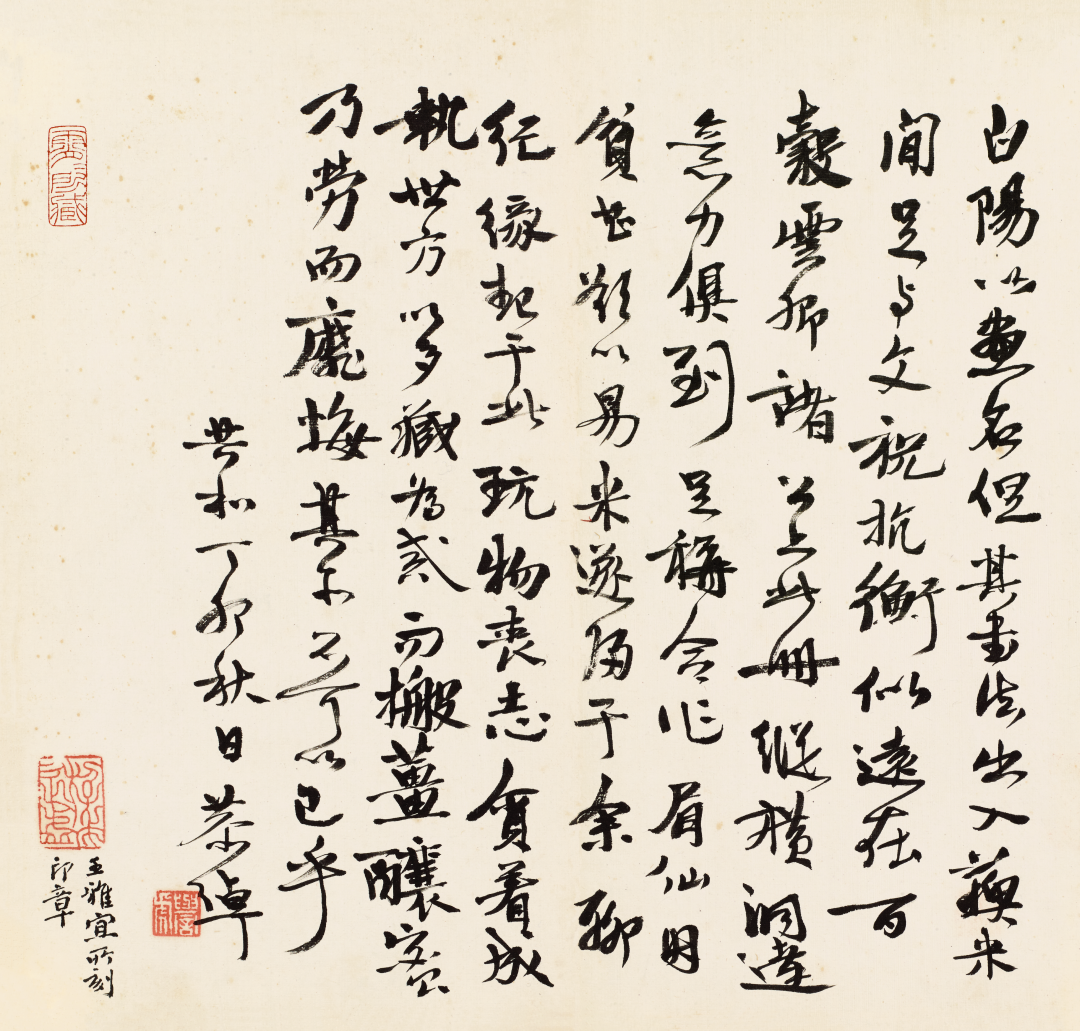 白陽以畫名但其書法出入蘇米
間足与文祝抗衡似遠在百
穀雲卿諸公上此冊縱橫洞達
意力俱到足稱合作眉仙因
貧甚欲以易米遂歸于余聊
紀緣起于此玩物喪志貪着成
執世方以多藏為戒而搬薑釀蜜
乃勞而靡悔其亦不可以已乎
共和丁卯秋日恭綽
王雅宜所刻
印章